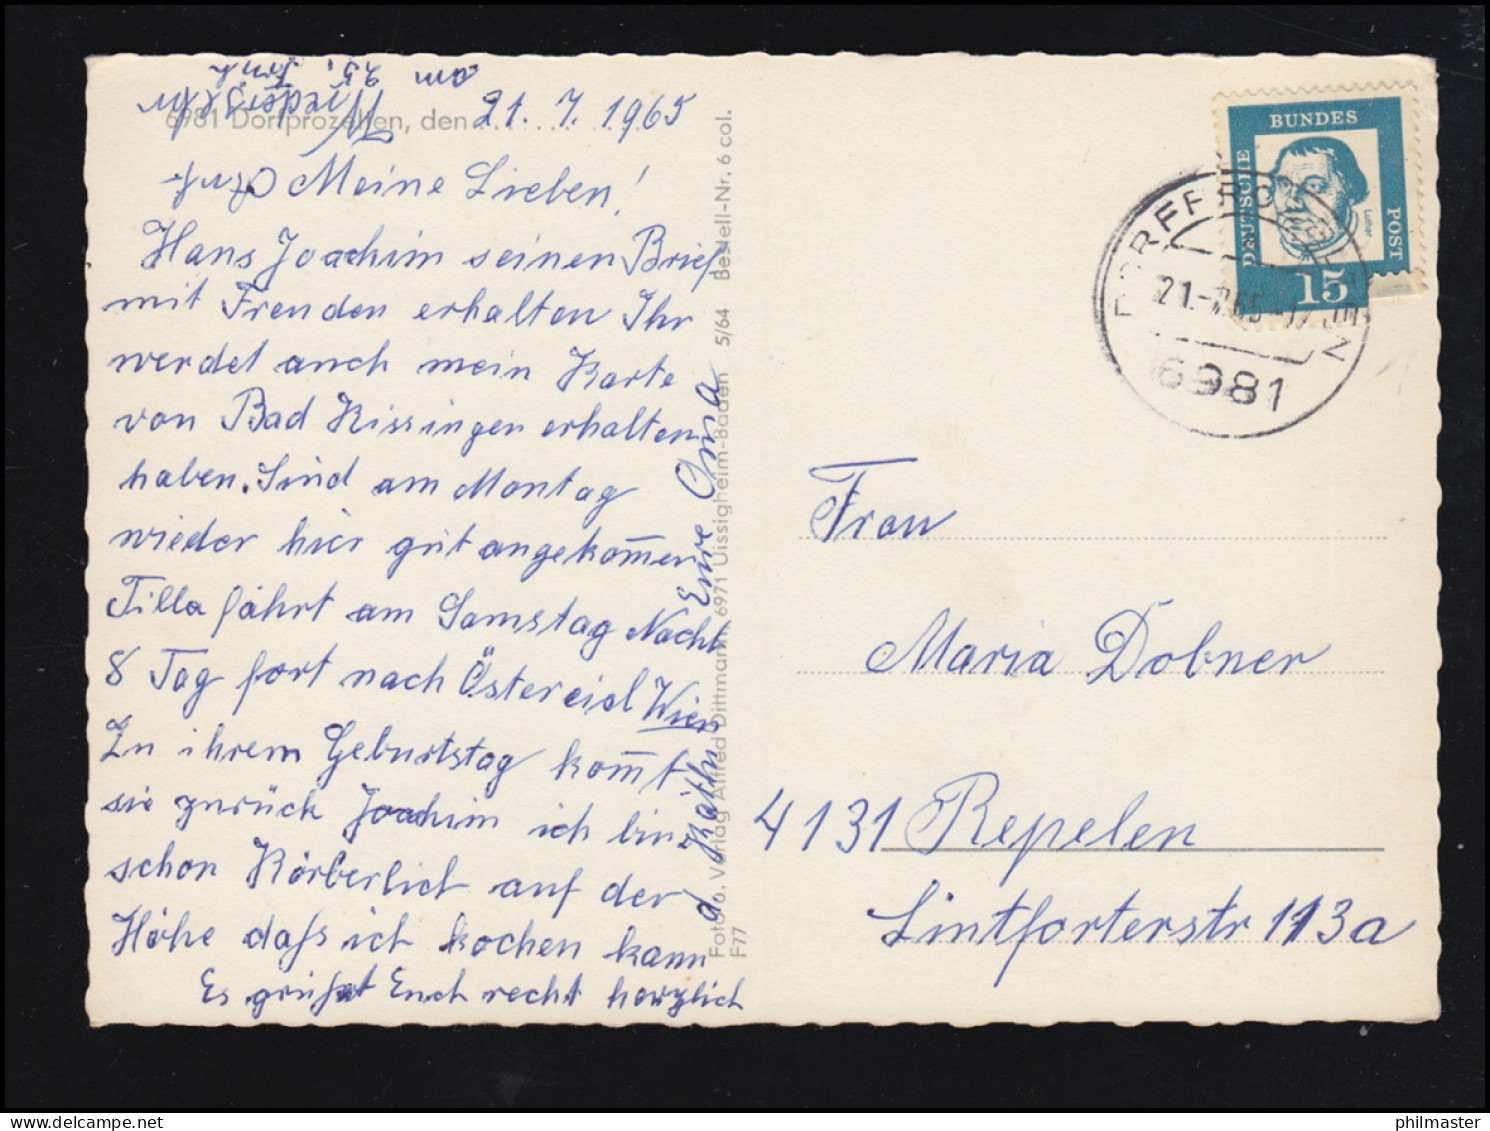 6981 Dorfprozelten, den 21. 7. 1965
Meine Lieben!
Hans Joachim seinen Brief
mit Freuden erhalten Ihr
werdet auch mein Karte
von Bad Kissingen erhalten
haben. Sind am Montag
wieder hier gut angekom̅en
Tilla fährt am Samstag Nacht
8 Tag fort nach Östereich Wien
Zu ihrem Geburtstag kom̅t
sie zurück Joachim ich bin
schon Körberlich auf der
Höhe daß ich kochen kann
Es grüßt Euch recht herzlich
Käthi Eure Oma
am 25.
Foto u. Verlag Alfred Dittmann, 6971 Uissigheim-Baden 5/64 Bestell-Nr. 6 col.
F77
DEUTSCHE
BUNDES
POST
Luther
15
21.-7.65-17
6981
Frau
Maria Dobner
4131 Repelen
Lintforterstr 113a
philmaster